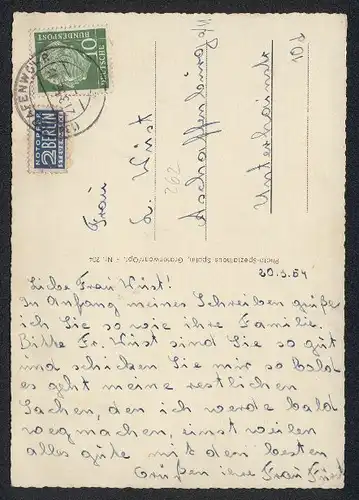 GRAFENWÖHR
10
DEUTSCHE
BUNDESPOST
NOTOPFER
2 BERLIN
STEUERMARKE
Frau
L. Wüst
Aschaffenburg a/M
Unterhain
10 d
262
Photo-Spezialhaus Spahn, Grafenwöhr/Opf. - Nr. 704
20.3.54
Liebe Frau Wüst!
In Anfang meines Schreiben grüße
ich Sie so wie ihre Familie.
Bitte Fr. Wüst sind Sie so gut
und schicken Sie mir so bald
es geht meine restlichen
Sachen, den ich werde bald
wegmachen, einst weilen
alles gute mit den besten
Grüßen ihre Frau Fürst